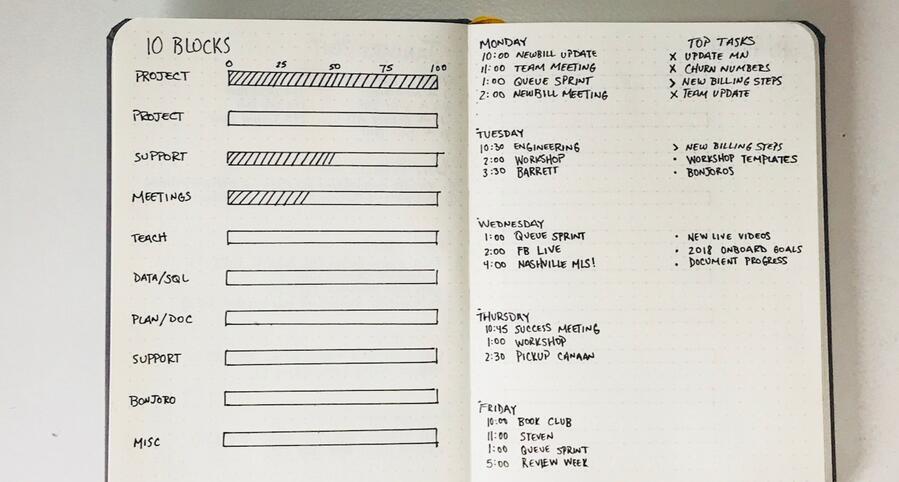 10 BLOCKS
0 25 50 75 100
PROJECT
PROJECT
SUPPORT
MEETINGS
TEACH
DATA/SQL
PLAN/DOC
SUPPORT
BONJORO
MISC
MONDAY
10:00 NEWBILL UPDATE
11:00 TEAM MEETING
1:00 QUEUE SPRINT
2:00 NEWBILL MEETING
TOP TASKS
X UPDATE MN
X CHURN NUMBERS
> NEW BILLING STEPS
X TEAM UPDATE
TUESDAY
10:30 ENGINEERING
2:00 WORKSHOP
3:30 BARRETT
> NEW BILLING STEPS
• WORKSHOP TEMPLATES
• BONJOROS
WEDNESDAY
1:00 QUEUE SPRINT
2:00 FB LIVE
4:00 NASHVILLE MLS!
• NEW LIVE VIDEOS
• 2018 ONBOARD GOALS
• DOCUMENT PROGRESS
THURSDAY
10:45 SUCCESS MEETING
1:00 WORKSHOP
2:30 PICKUP CANAAN
FRIDAY
10:00 BOOK CLUB
11:00 STEVEN
1:00 QUEUE SPRINT
5:00 REVIEW WEEK